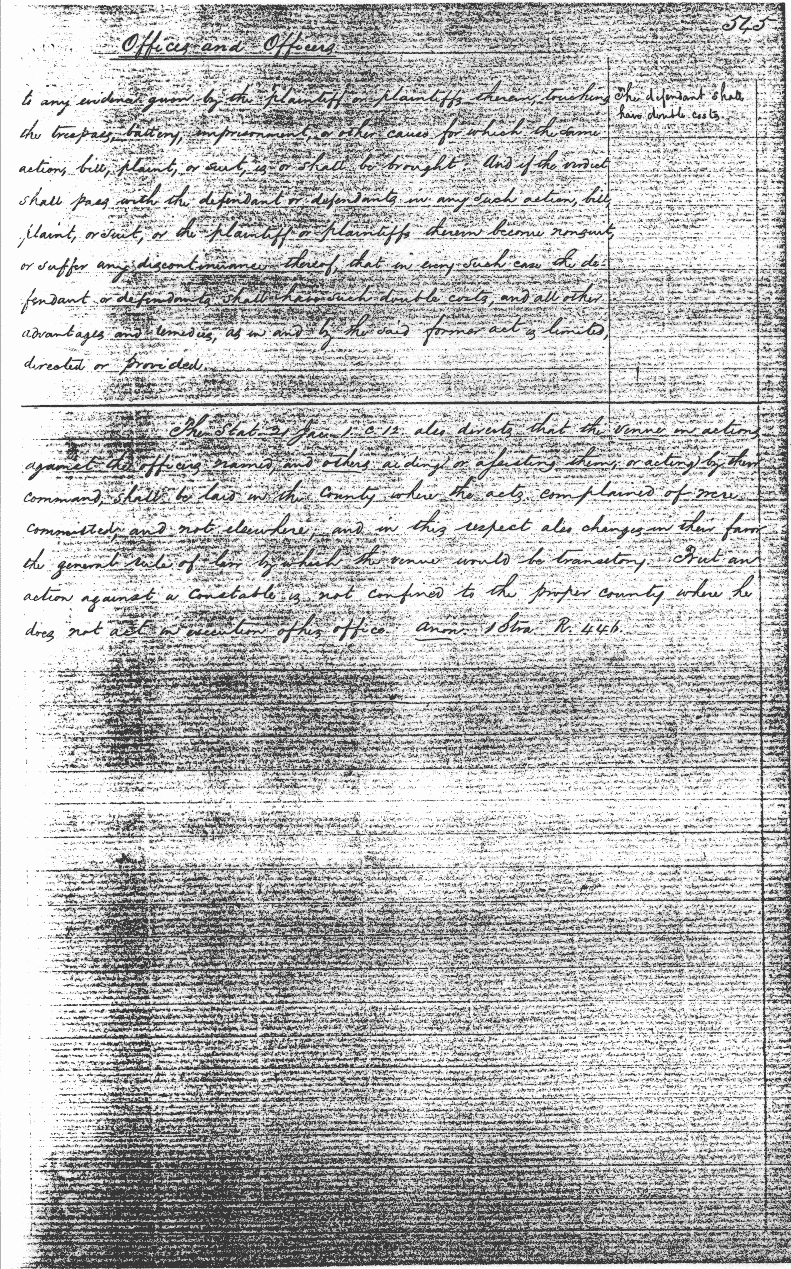 545
Offices and Officers
to any evidence given by the plaintiff or plaintiffs therein, touching
The defendant shall
have double costs.
the trespass, battery, imprisonment, or other causes for which the same
action, bill, plaint, or suit, is or shall be brought. And if the verdict
shall pass with the defendant or defendants in any such action, bill,
plaint, or suit, or the plaintiff or plaintiffs therein become nonsuit,
or suffer any discontinuance thereof, that in every such case the de-
fendant or defendants shall have such double costs, and all other
advantages and remedies, as in and by the said former act is limited,
directed or provided.
The Stat. 21 Jac. 1. c. 12 also directs that the venue in actions
against the officers named, and others aiding or assisting them, or acting by their
command, shall be laid in the County where the acts complained of were
committed, and not elsewhere, and in this respect also changes in their favor
the general rule of law by which the venue would be transitory. But an
action against a Constable is not confined to the proper county where he
does not act in execution of his office. Anon. 1 Stra. R. 446.